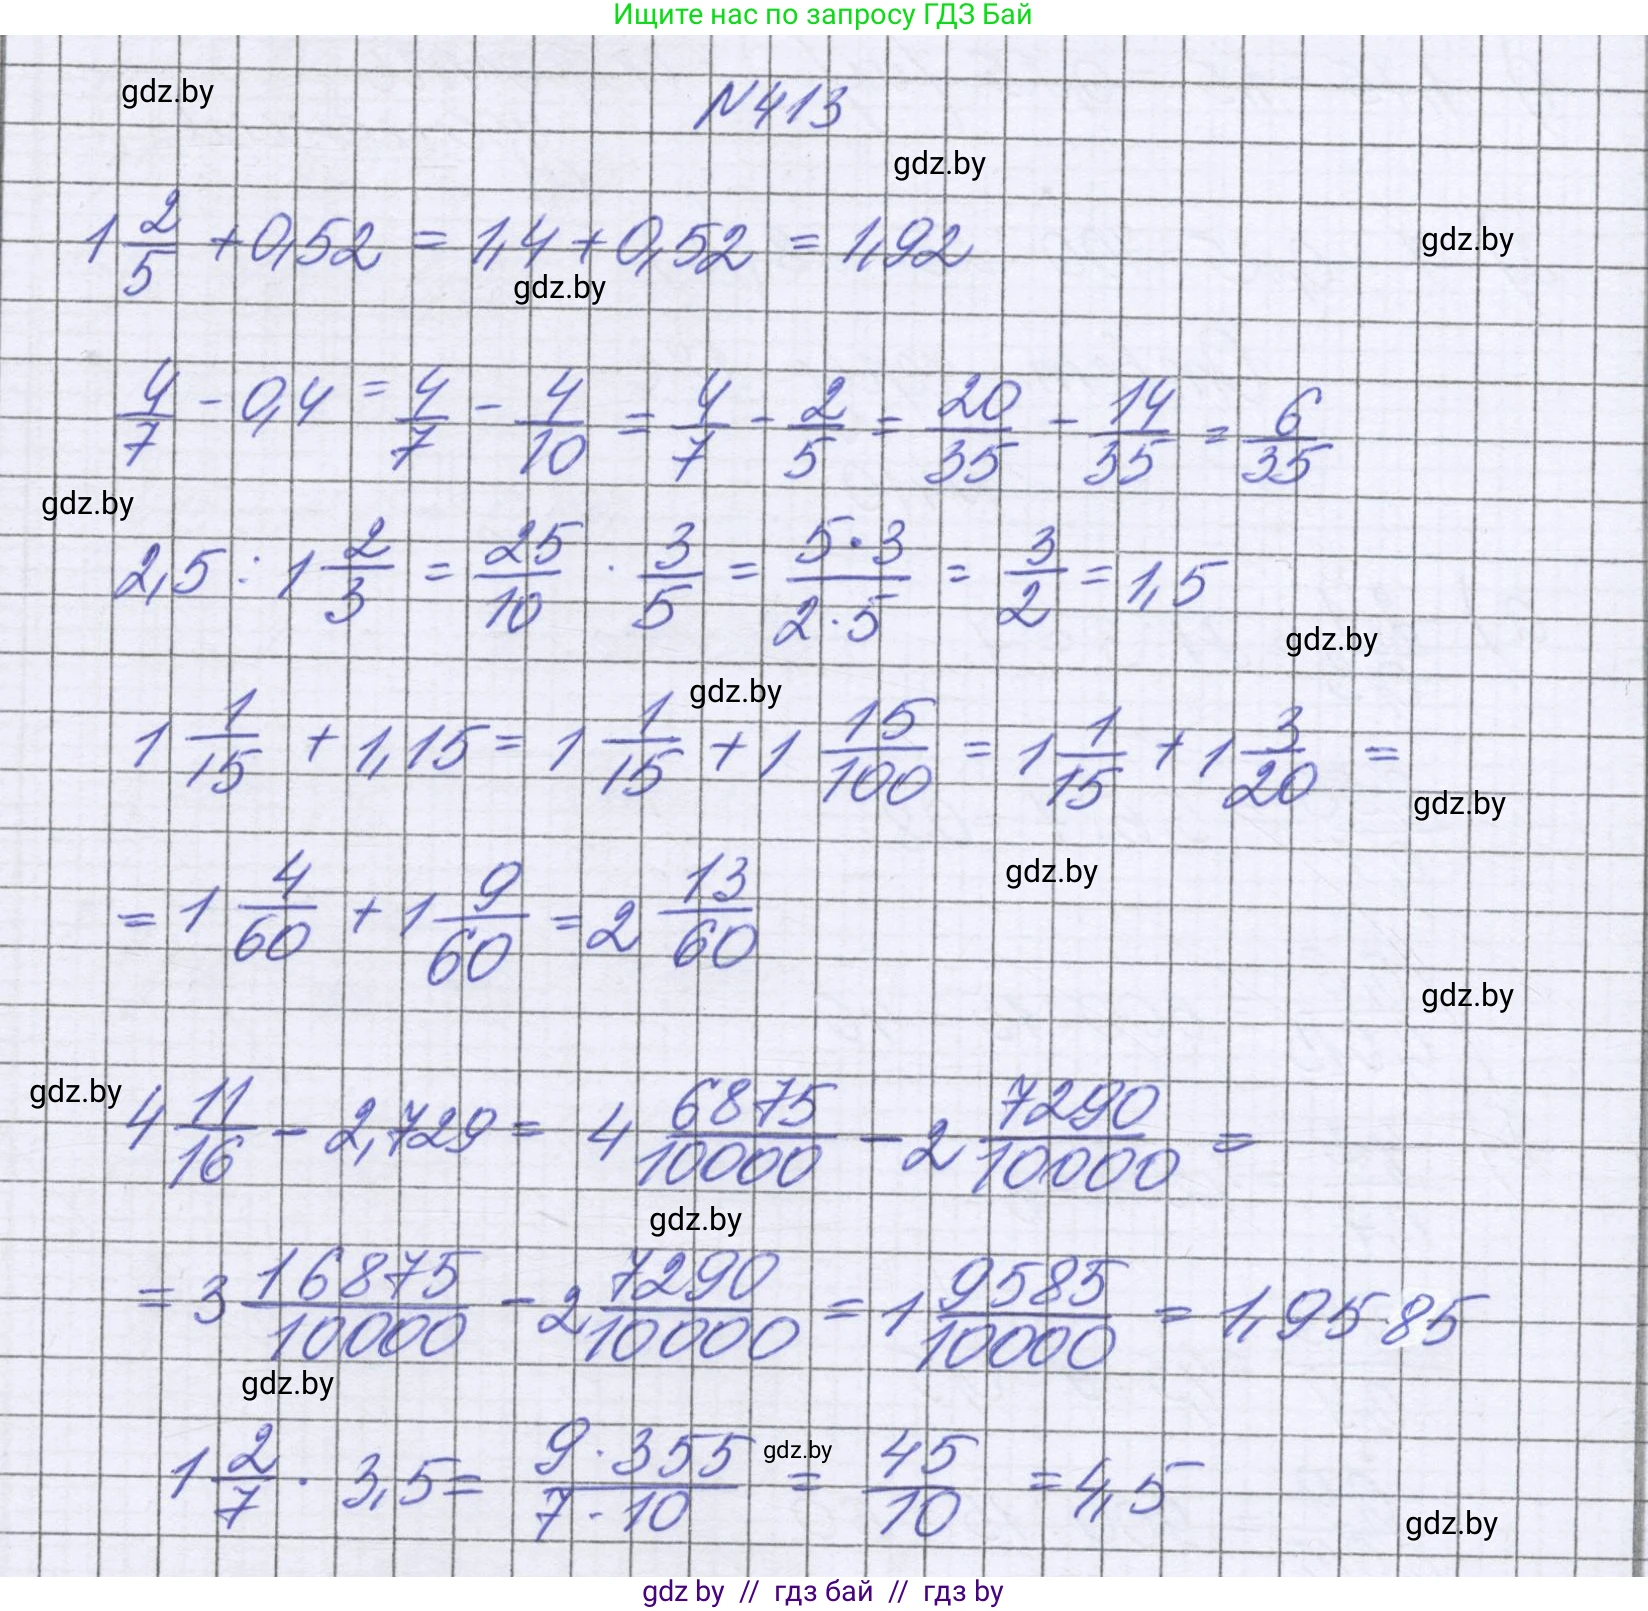 Ищите нас по запросу ГДЗ Бай
gdz.by
N413
gdz.by
1 2/5 + 0,52 = 1,4 + 0,52 = 1,92
gdz.by
gdz.by
4/7 - 0,4 = 4/7 - 4/10 = 4/7 - 2/5 = 20/35 - 14/35 = 6/35
gdz.by
2,5 : 1 2/3 = 25/10 · 3/5 = 5·3/2·5 = 3/2 = 1,5
gdz.by
gdz.by
1 1/15 + 1,15 = 1 1/15 + 1 15/100 = 1 1/15 + 1 3/20 =
gdz.by
gdz.by
= 1 4/60 + 1 9/60 = 2 13/60
gdz.by
gdz.by
4 11/16 - 2,729 = 4 6875/10000 - 2 7290/10000 =
gdz.by
= 3 16875/10000 - 2 7290/10000 = 1 9585/10000 = 1,9585
gdz.by
1 2/7 · 3,5 = 9·355/7·10 = 45/10 = 4,5
gdz.by
gdz.by
gdz by // гдз бай // гдз by